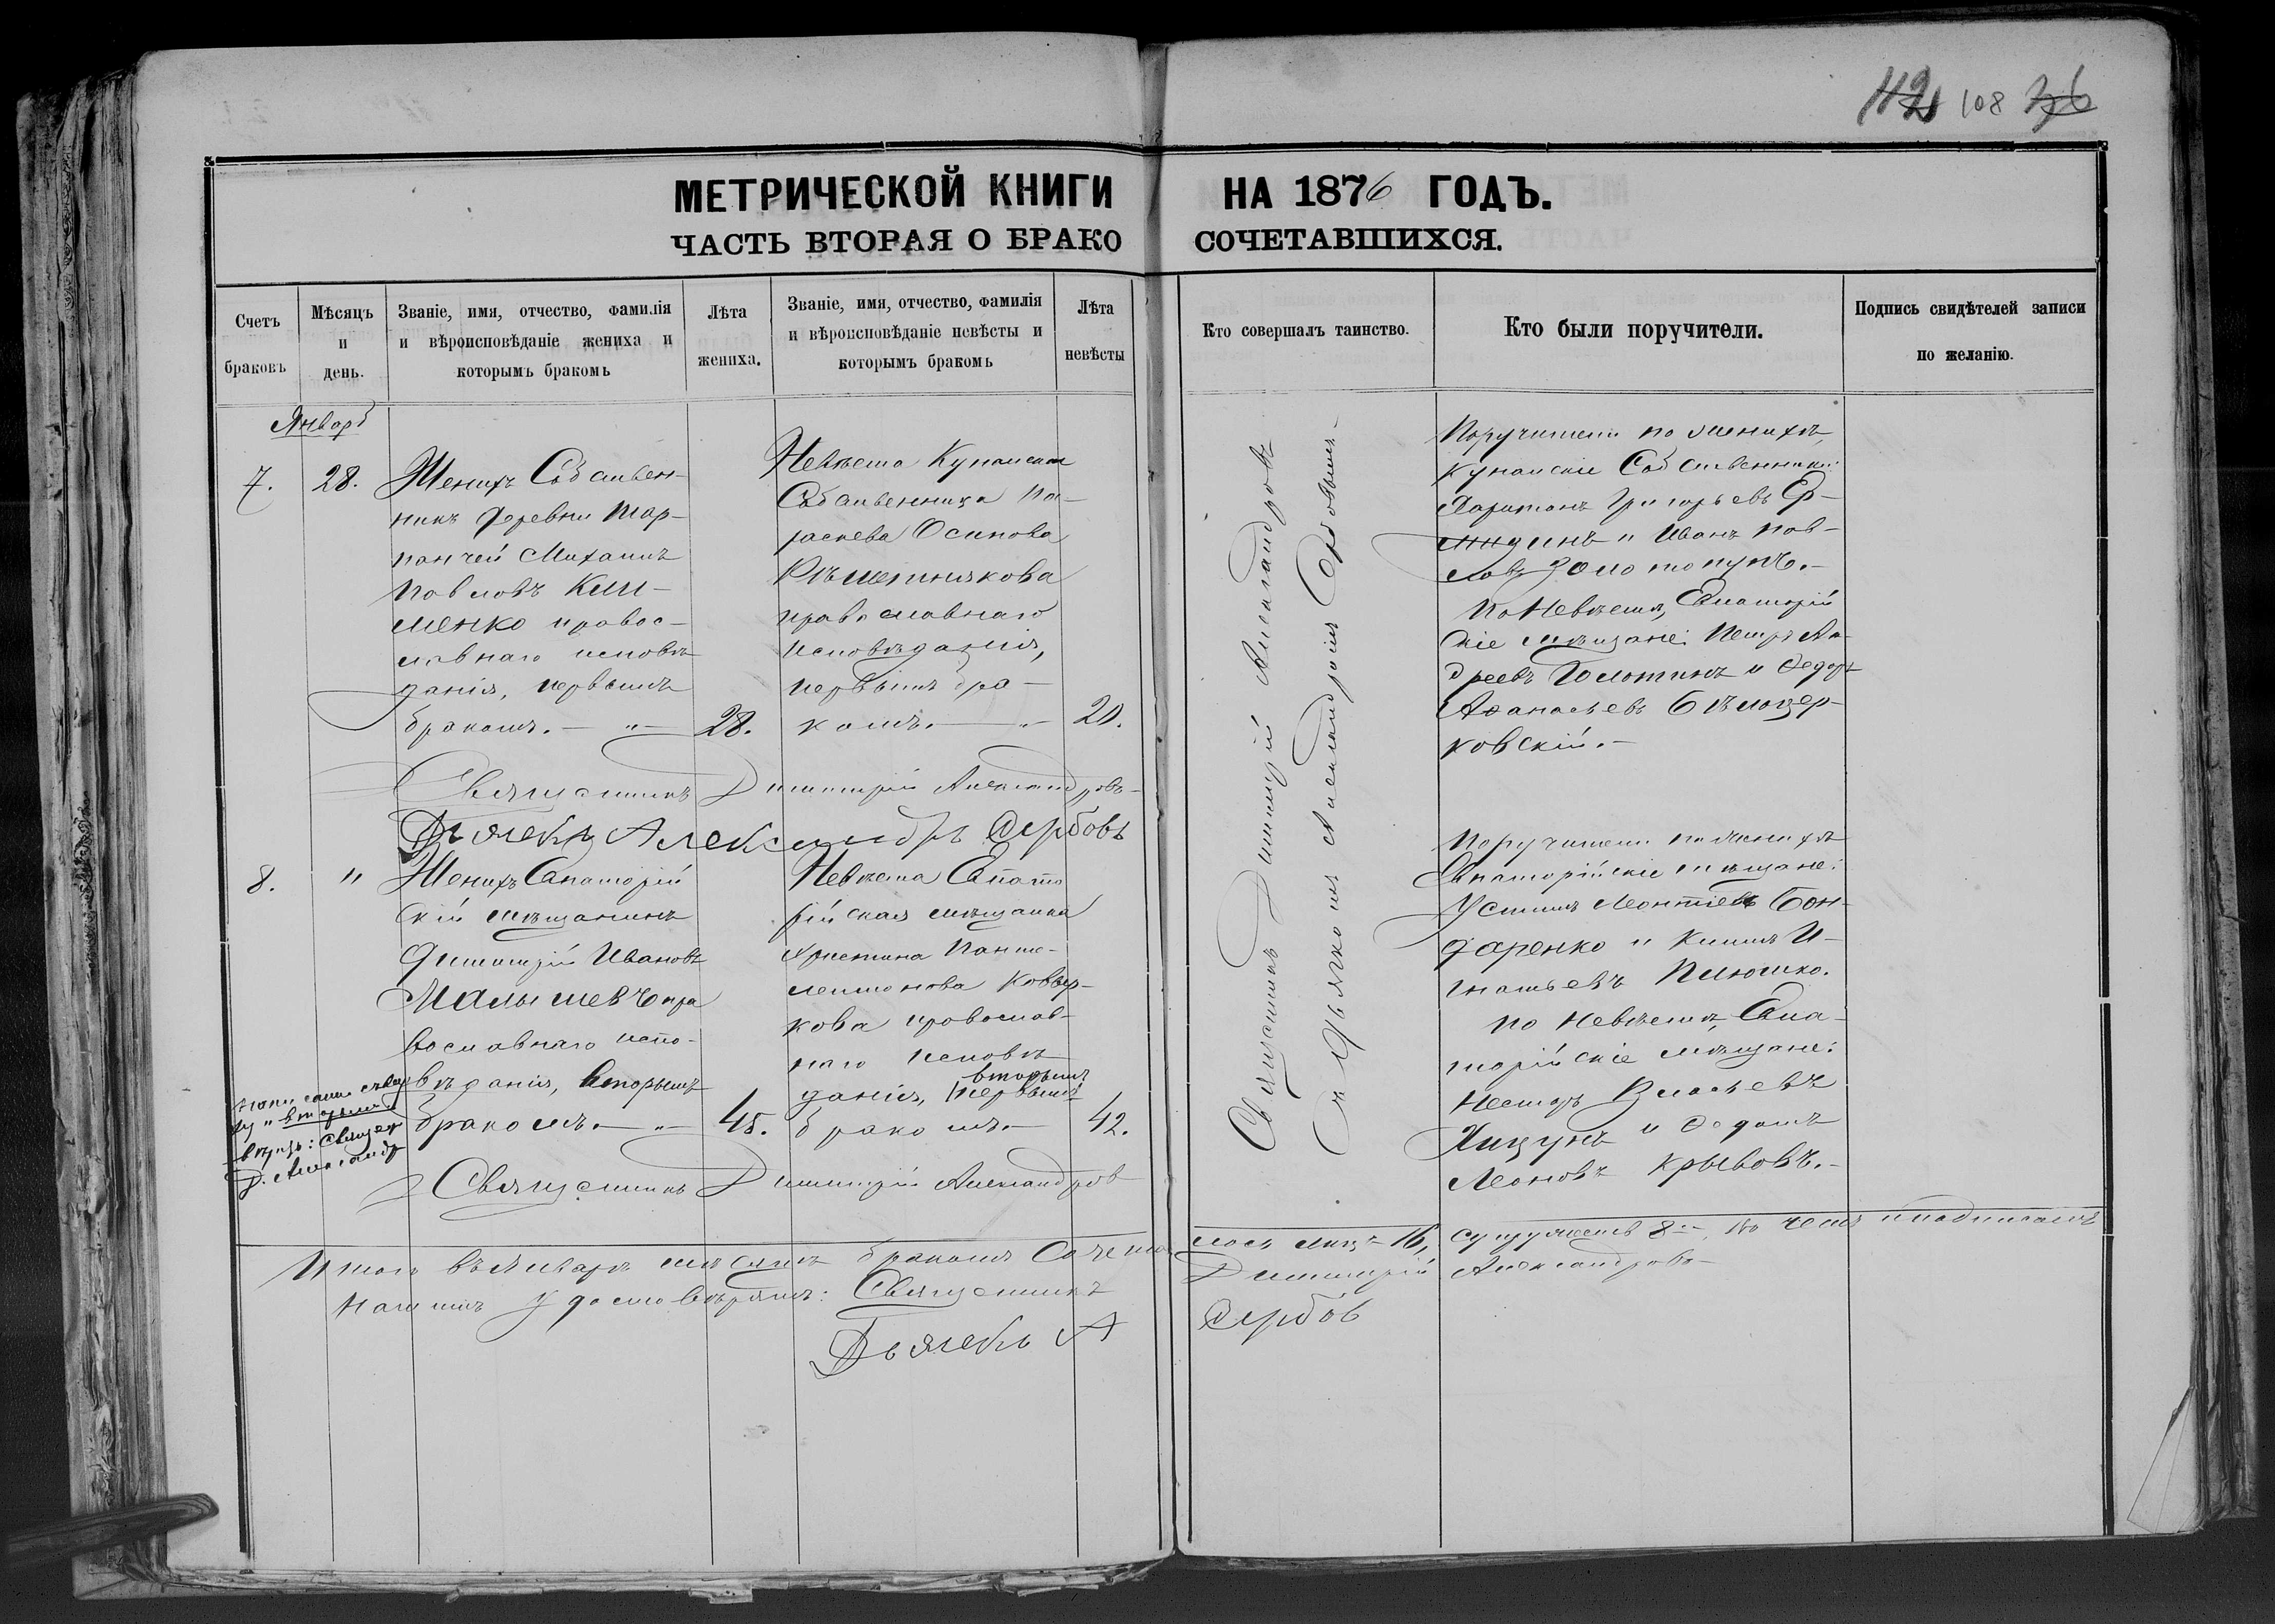 112 108 36
МЕТРИЧЕСКОЙ КНИГИ НА 1876 ГОДЪ.
ЧАСТЬ ВТОРАЯ О БРАКОСОЧЕТАВШИХСЯ.
Счетъ браковъ
Мѣсяцъ и день.
Званіе, имя, отчество, фамилія
и вѣроисповѣданіе жениха и
которымъ бракомъ
Лѣта жениха.
Званіе, имя, отчество, фамилія
и вѣроисповѣданіе невѣсты и
которымъ бракомъ
Лѣта невѣсты
Кто совершалъ таинство.
Кто были поручители.
Подпись свидѣтелей записи
по желанію.
Январь
7.
28.
Женихъ Собствен-
никъ деревни Тар-
панчей Михаилъ
Павловъ Кли-
менко правос-
лавнаго исповѣ
данія, первымъ
бракомъ. — „ —
28.
Невѣста Кунанская
Собственница Па-
раскева Осипова
Рѣшетнякова
православнаго
исповѣданія,
первымъ бра-
комъ. — „ —
20.
Священникъ Димитрій Александровъ
Дьячекъ Александръ Сербовъ
Поручители по женихѣ,
Кунанскіе Собственники:
Харитонъ Григорьевъ
и Иванъ Пав-
ловъ Золотопупъ. —
По Невѣстѣ, Евпаторій
скіе мѣщане: Петръ Ан-
дреевъ Болотинъ и Федоръ
Афанасьевъ Бѣлоцер-
ковскій. —
8.
"
Женихъ Евпаторій
скій мѣщанинъ
Димитрій Ивановъ
Малышевъ пра
вославнаго испо-
вѣданія, вторымъ
бракомъ. — „ —
45.
Невѣста Евпато
рійская мѣщанка
Христина Панте-
леимонова Ковер-
кова православ-
наго исповѣ
вторымъ
данія, первымъ
бракомъ. —
42.
Священникъ Димитрій Александров
Поручители по женихѣ
Евпаторійскіе мѣщане:
Устимъ Леонтіевъ Бон-
даренко и Климъ И-
гнатьевъ Плюшко.
По Невѣстѣ, Евпа-
торійскіе мѣщане:
Несторъ Власьевъ
Хицунъ и Федотъ
Леоновъ Крывовъ. —
Священникъ Димитрій Александровъ
съ Дьячкомъ Александромъ Сербовымъ. —
вторымъ
Итого въ Январѣ мѣсяцѣ бракомъ сочета
лось лицъ 16, супружествъ 8 —, въ чемъ и подписомъ
нашимъ удостовѣряемъ: Священникъ Димитрій Александровъ
Дьячекъ А Сербов